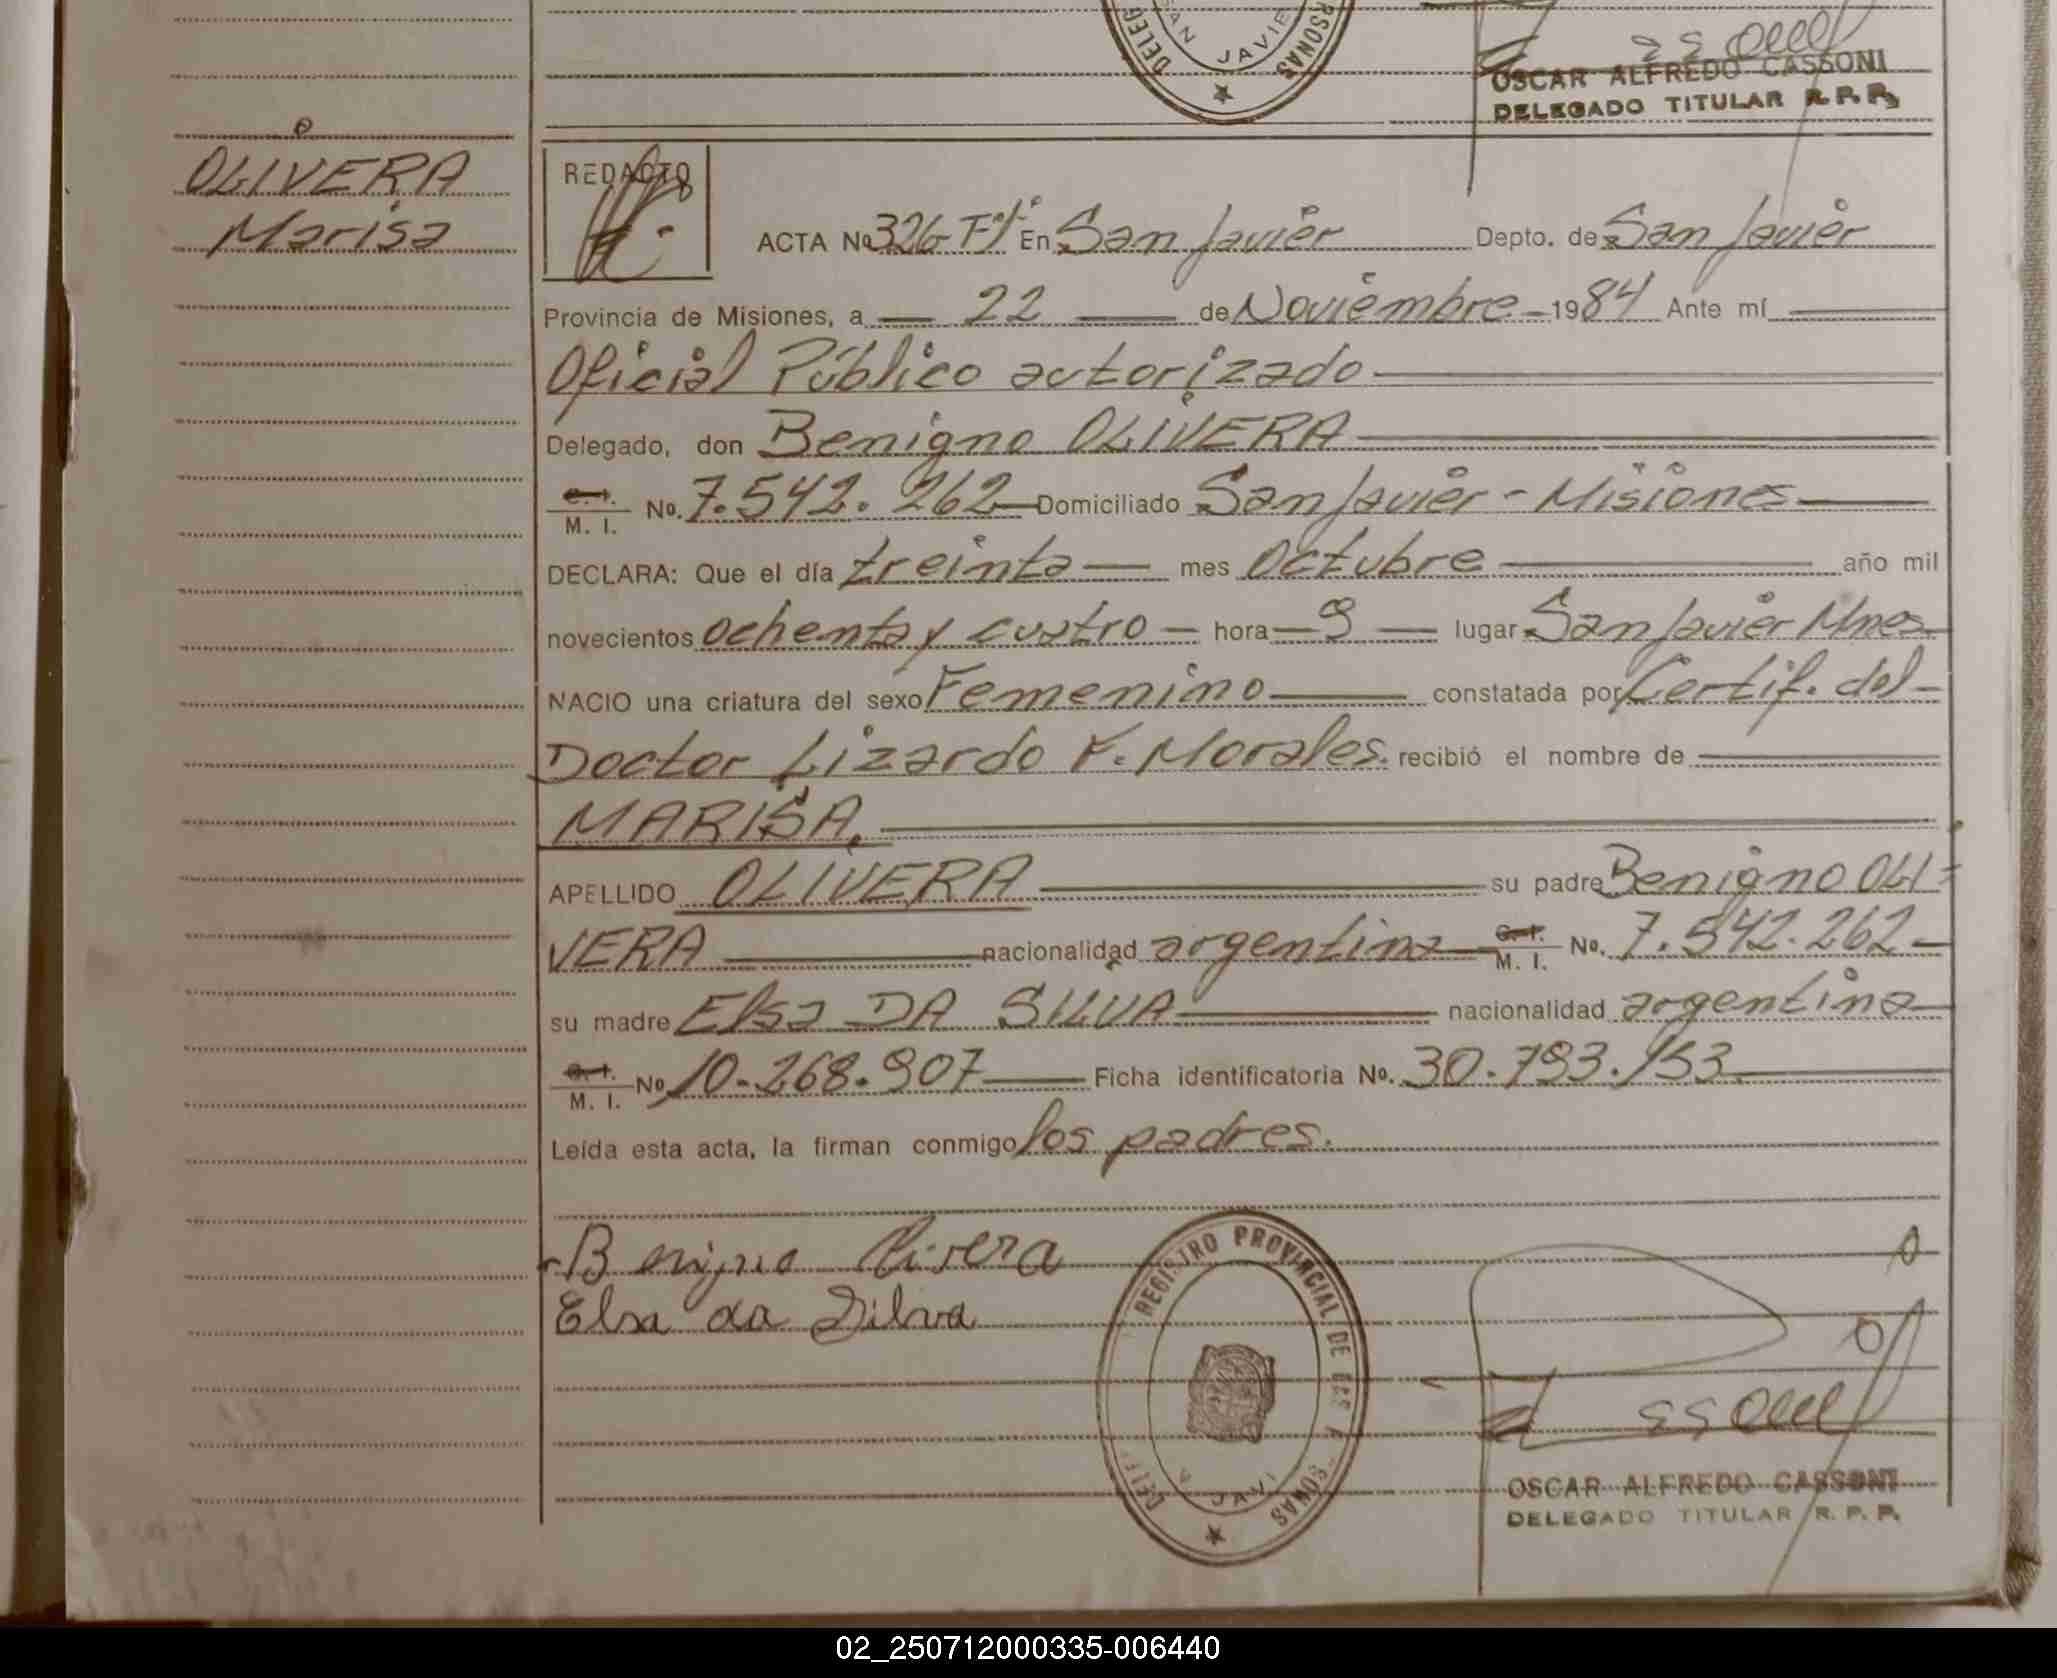 SAN JAVIE
DELEG
RSONAS
OSCAR ALFREDO CASSONI
DELEGADO TITULAR R.P.P.
OLIVERA
Marisa
REDACTO
ACTA No 326 En San Javier Depto. de San Javier
Provincia de Misiones, a 22 de Noviembre 1984 Ante mí
Oficial Público autorizado
Delegado, don Benigno OLIVERA
C. I.
M. I. No. 7.542.262 Domiciliado San Javier - Misiones
DECLARA: Que el día treinta mes Octubre año mil
novecientos ochenta y cuatro hora 9 lugar San Javier Mnes
NACIO una criatura del sexo Femenino constatada por Certif. del
Doctor Lizardo F. Morales. recibió el nombre de
MARISA.
APELLIDO OLIVERA su padre Benigno OLI=
VERA nacionalidad argentina C. I. M. I. No. 7.542.262
su madre Elsa DA SILVA nacionalidad argentina
C. I.
M. I. No 10.268.907 Ficha identificatoria No. 30.793.153
Leída esta acta, la firman conmigo los padres.
Benigno Olivera
Elsa da Silva
REGISTRO PROVINCIAL DE
JAVI
OSCAR ALFREDO CASSONI
DELEGADO TITULAR R. P. P.
02_250712000335-006440